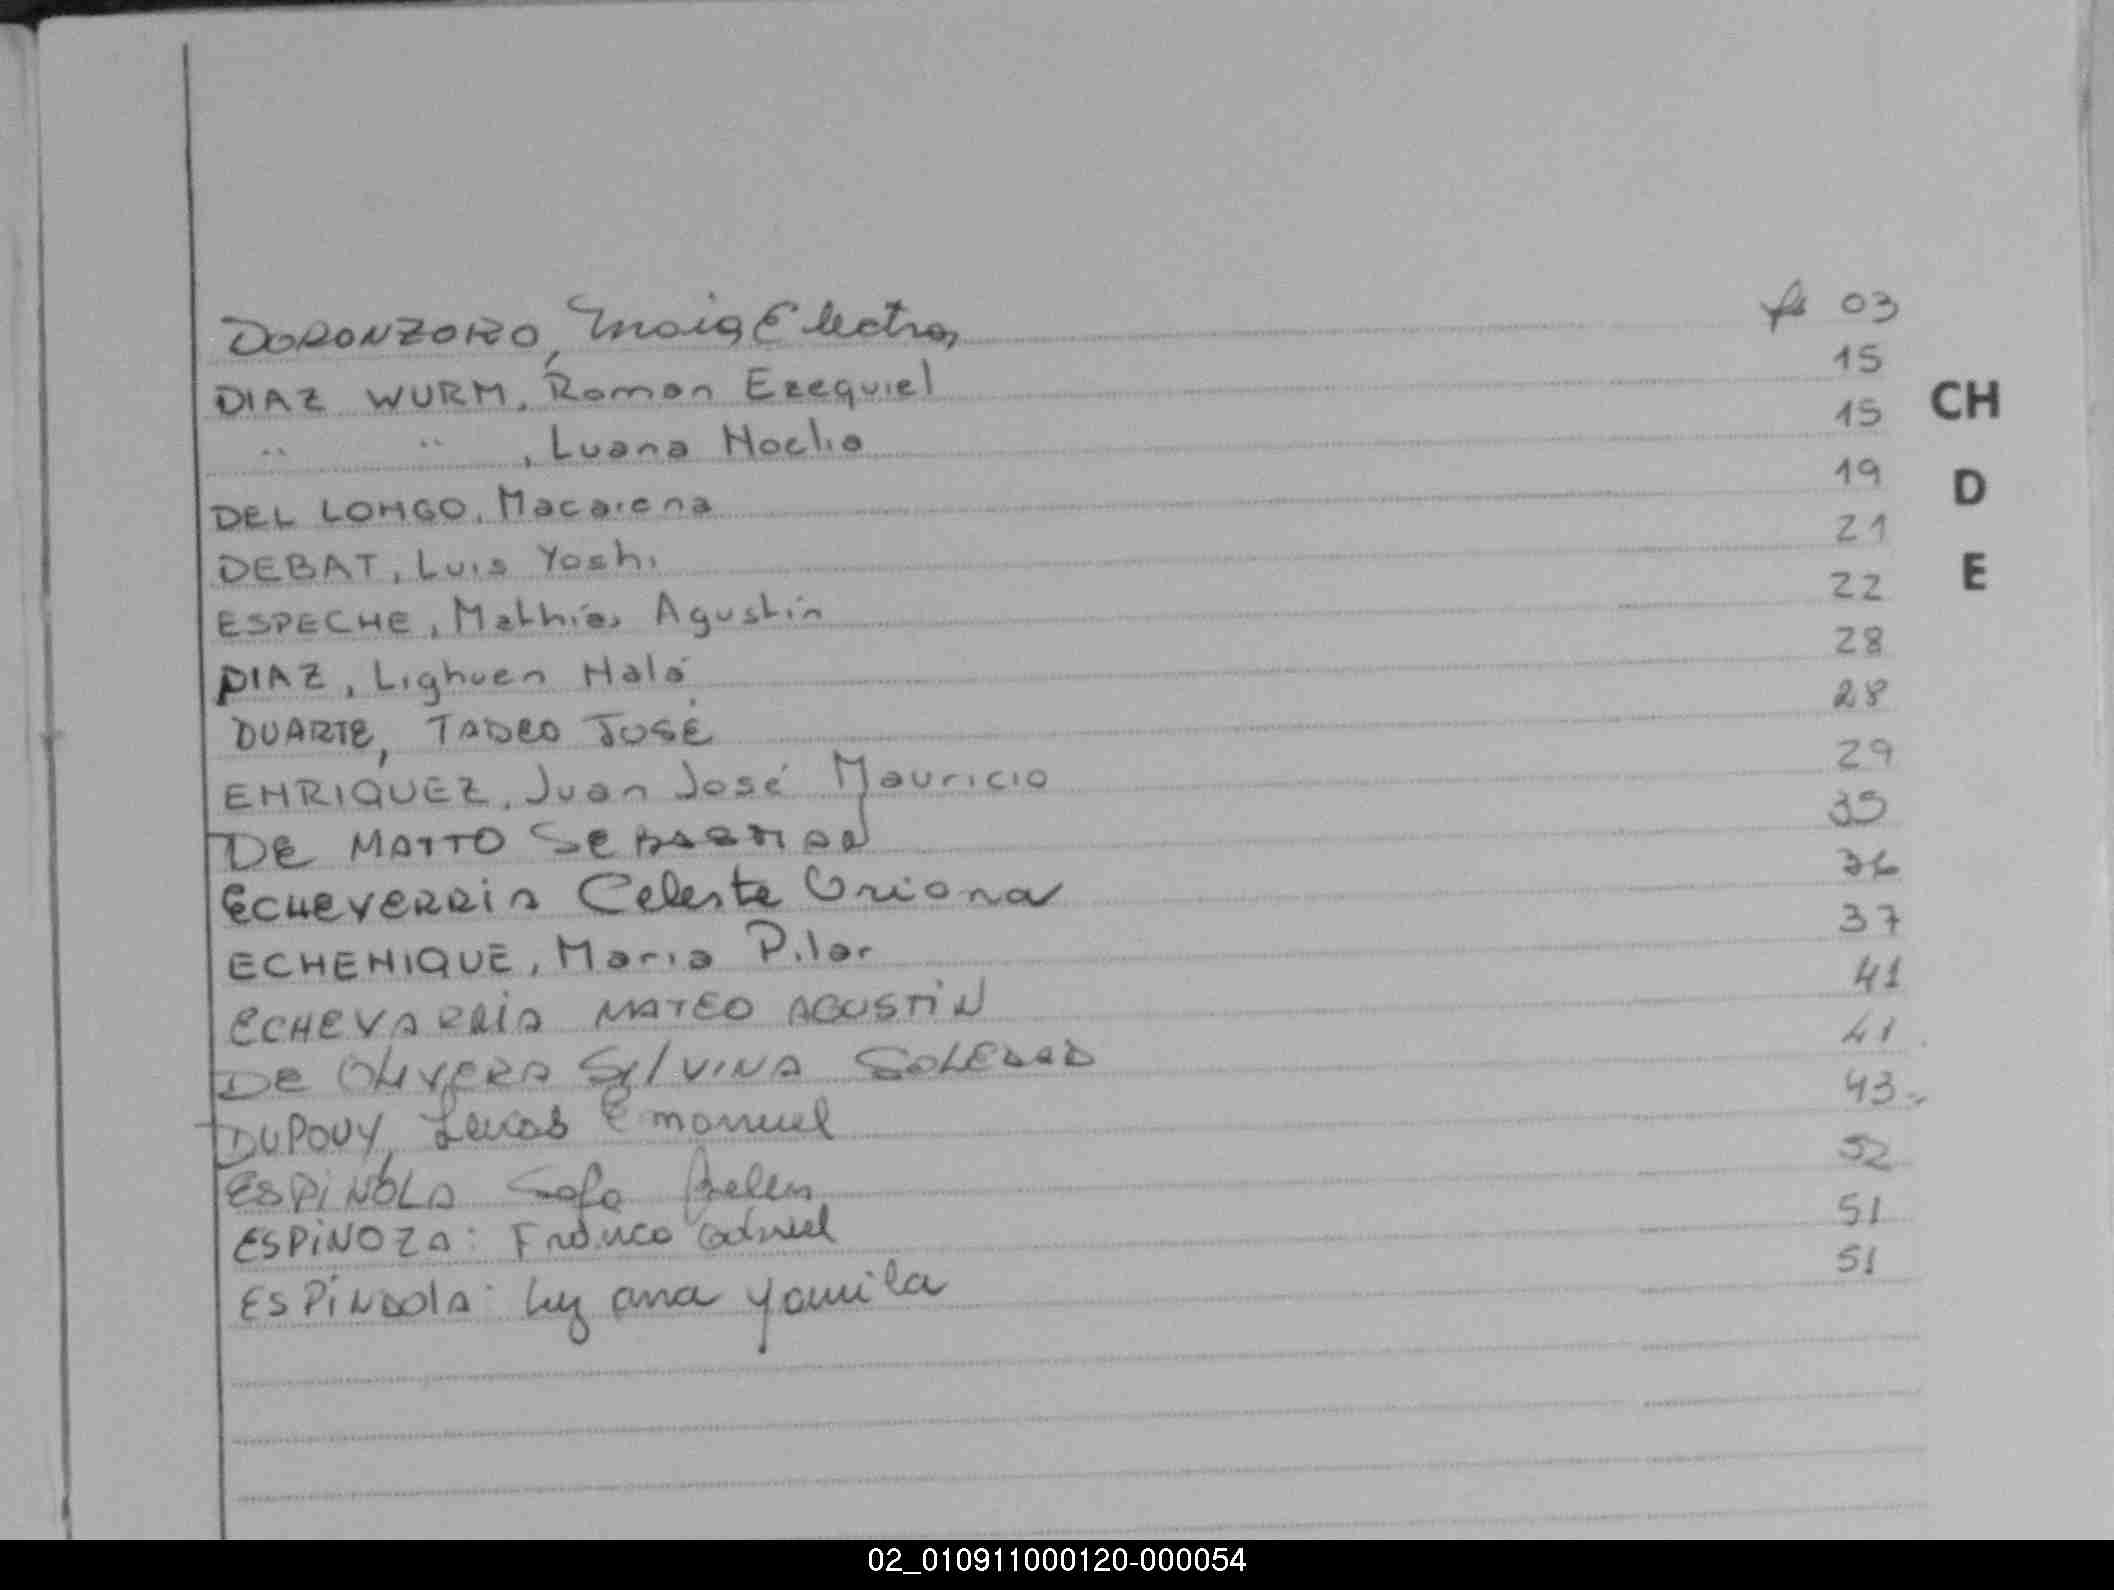 DORONZORO, Electra, fs 03
DIAZ WURM, Roman Ezequiel 15
" " , Luana Noelia 15
DEL LONGO, Macarena 19
DEBAT, Luis Yoshi 21
ESPECHE, Mathías Agustín 22
DIAZ, Lighuen 28
DUARTE, TADEO JOSÉ 28
ENRIQUEZ, Juan José Mauricio 29
DE MATTO SEBASTIAN 35
ECHEVERRIA Celeste Oriana 36
ECHENIQUE, Maria Pilar 37
ECHEVARRÍA MATEO AGUSTÍN 41
DE OLIVERA SILVINA SOLEDAD 41
DUPOUY, Lucas Emanuel 43
ESPINOLA Sofa Belen 52
ESPINOZA: Franco Gabriel 51
ESPÍNDOLA: Luz ana yamila 51
CH
D
E
02_010911000120-000054